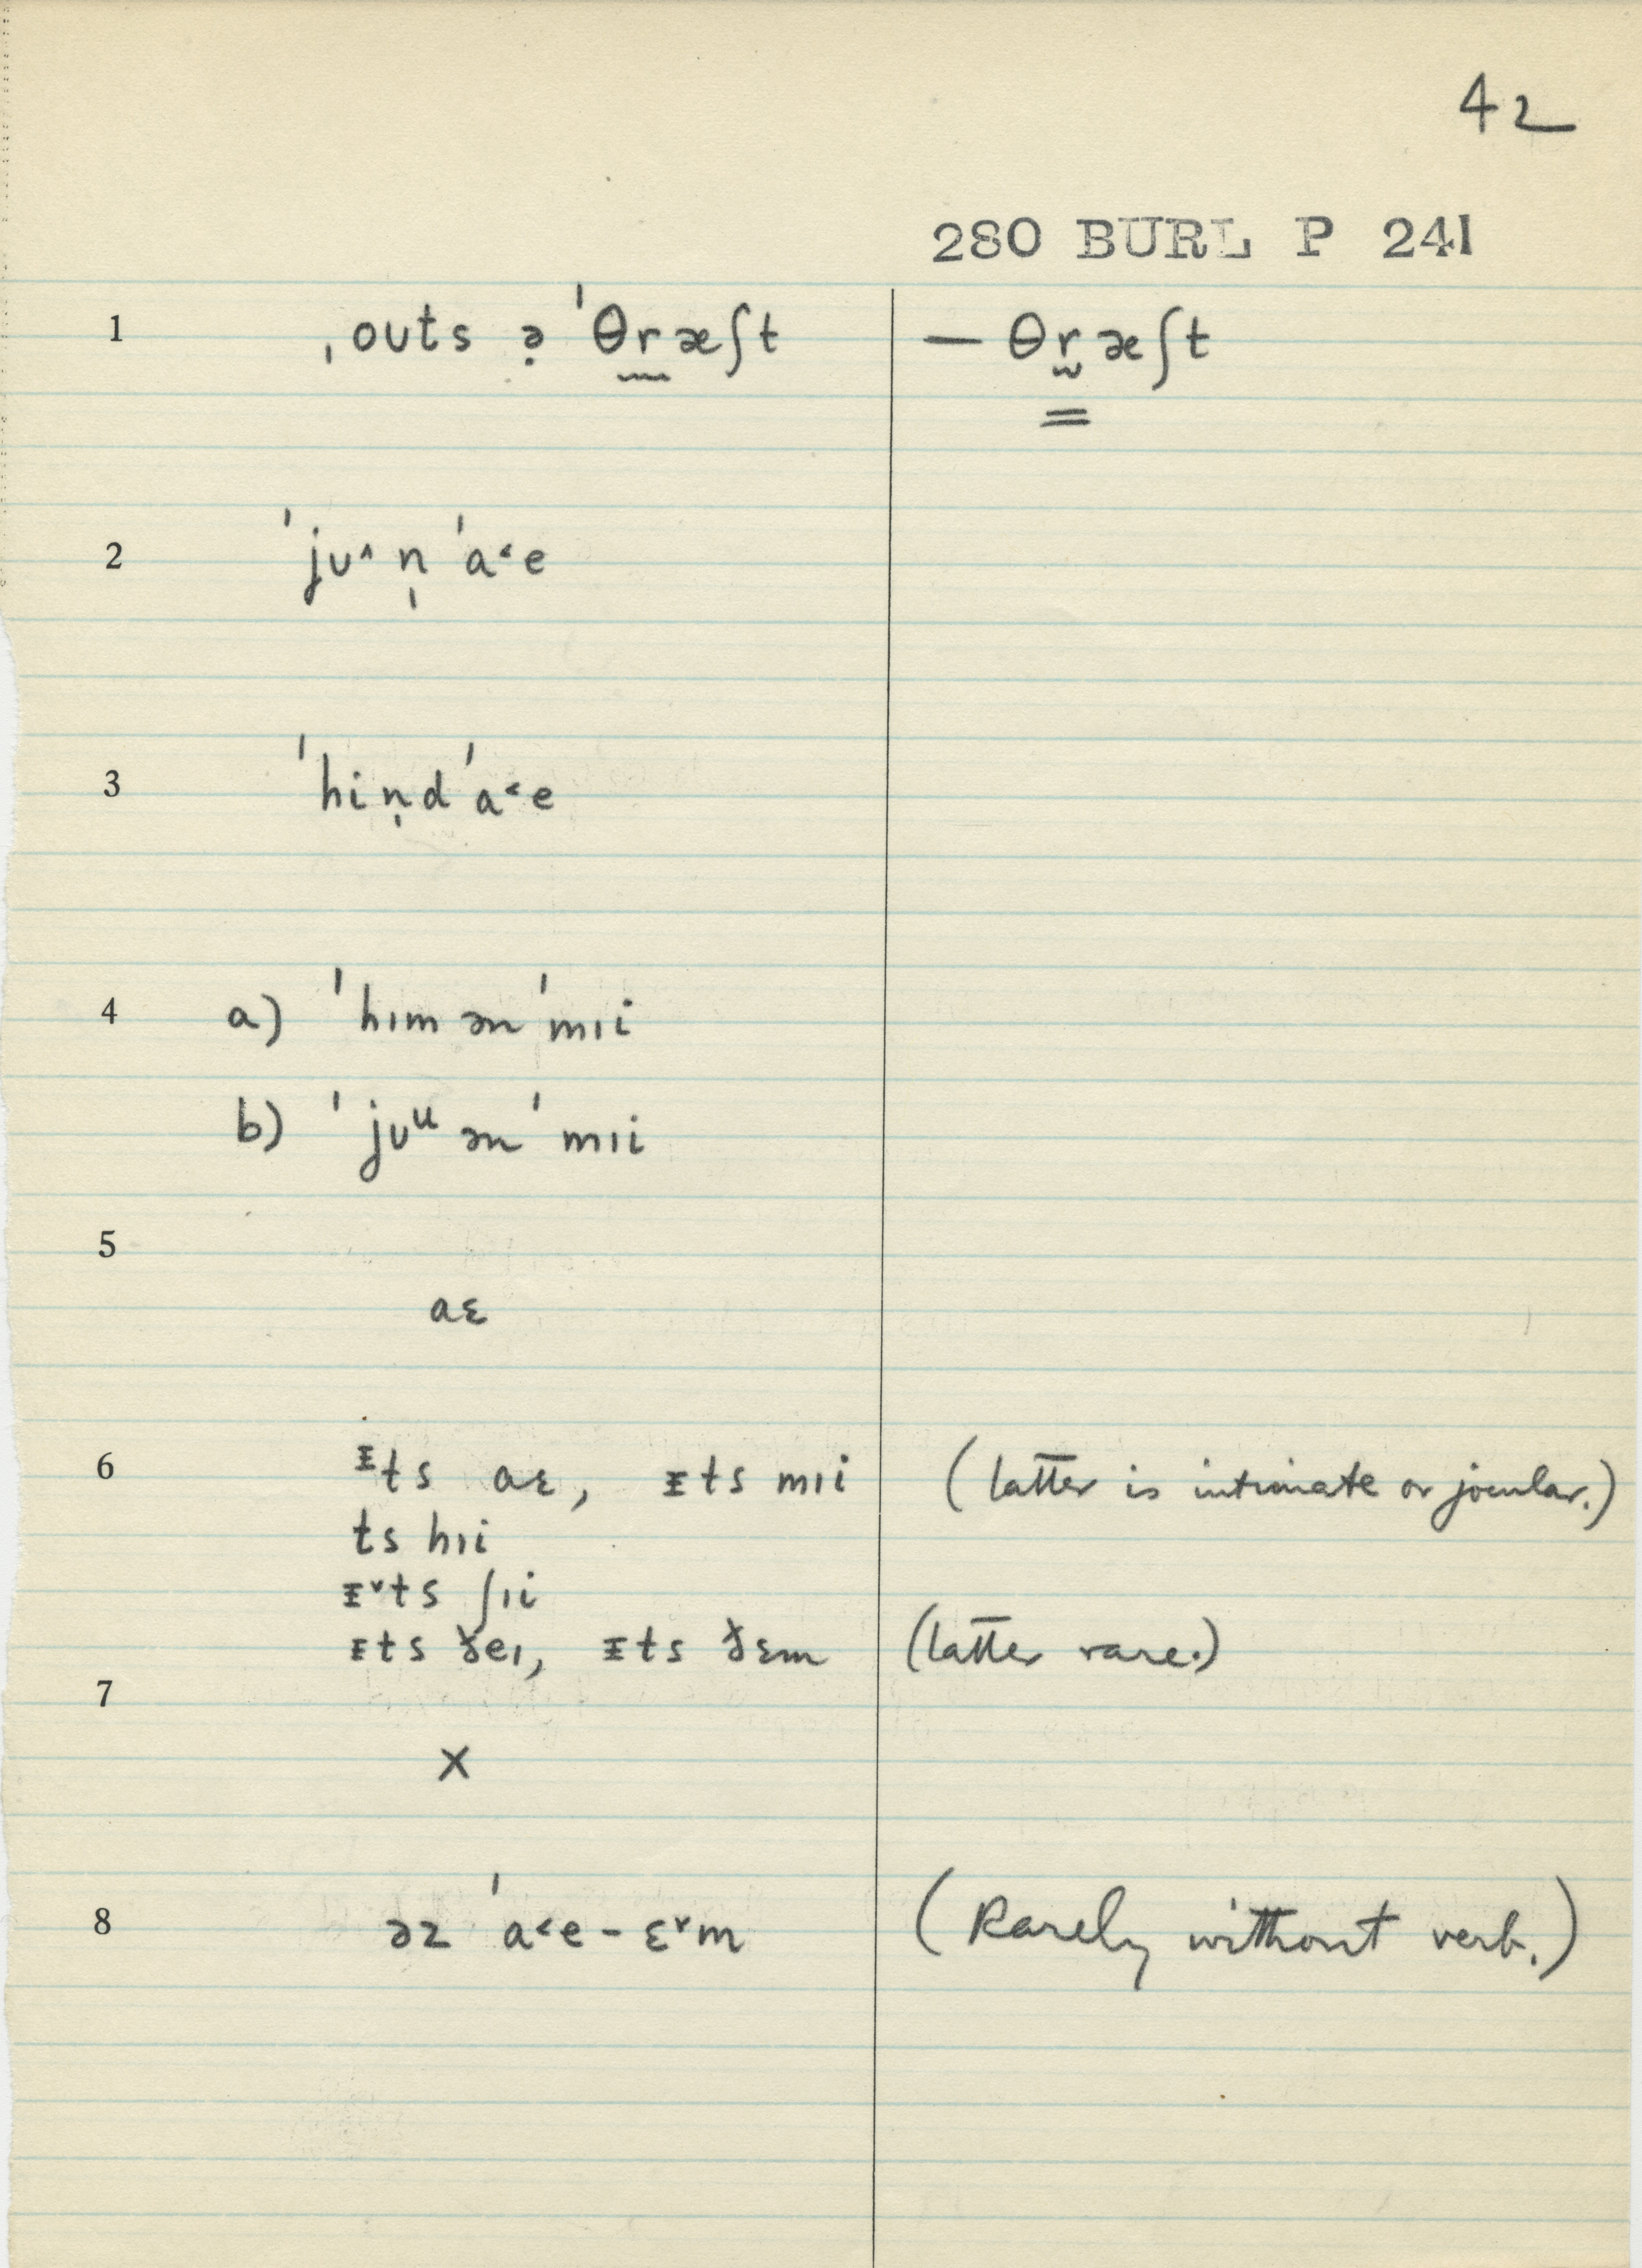 42
280 BURL P 241
1 ˌoʊts ə̣ ˈθr̰æʃt — θr̰æʃt
2 ˈjʊ˄ n̩ ˈa˂e
3 ˈhin̩d ˈa˂e
4 a) ˈhɪm ən ˈmɪi
b) ˈjʊᵘ ən ˈmɪi
5
aɛ
6 ᵻts aɛ, ᵻts mɪi (latter is intimate or jocular.)
ts hɪi
ᵻ˅ts ʃɪi
ᵻts ðeɪ, ᵻts ðɛm (latter rare.)
7
x
8 əz ˈa˂e – ɛ˅m (Rarely without verb.)